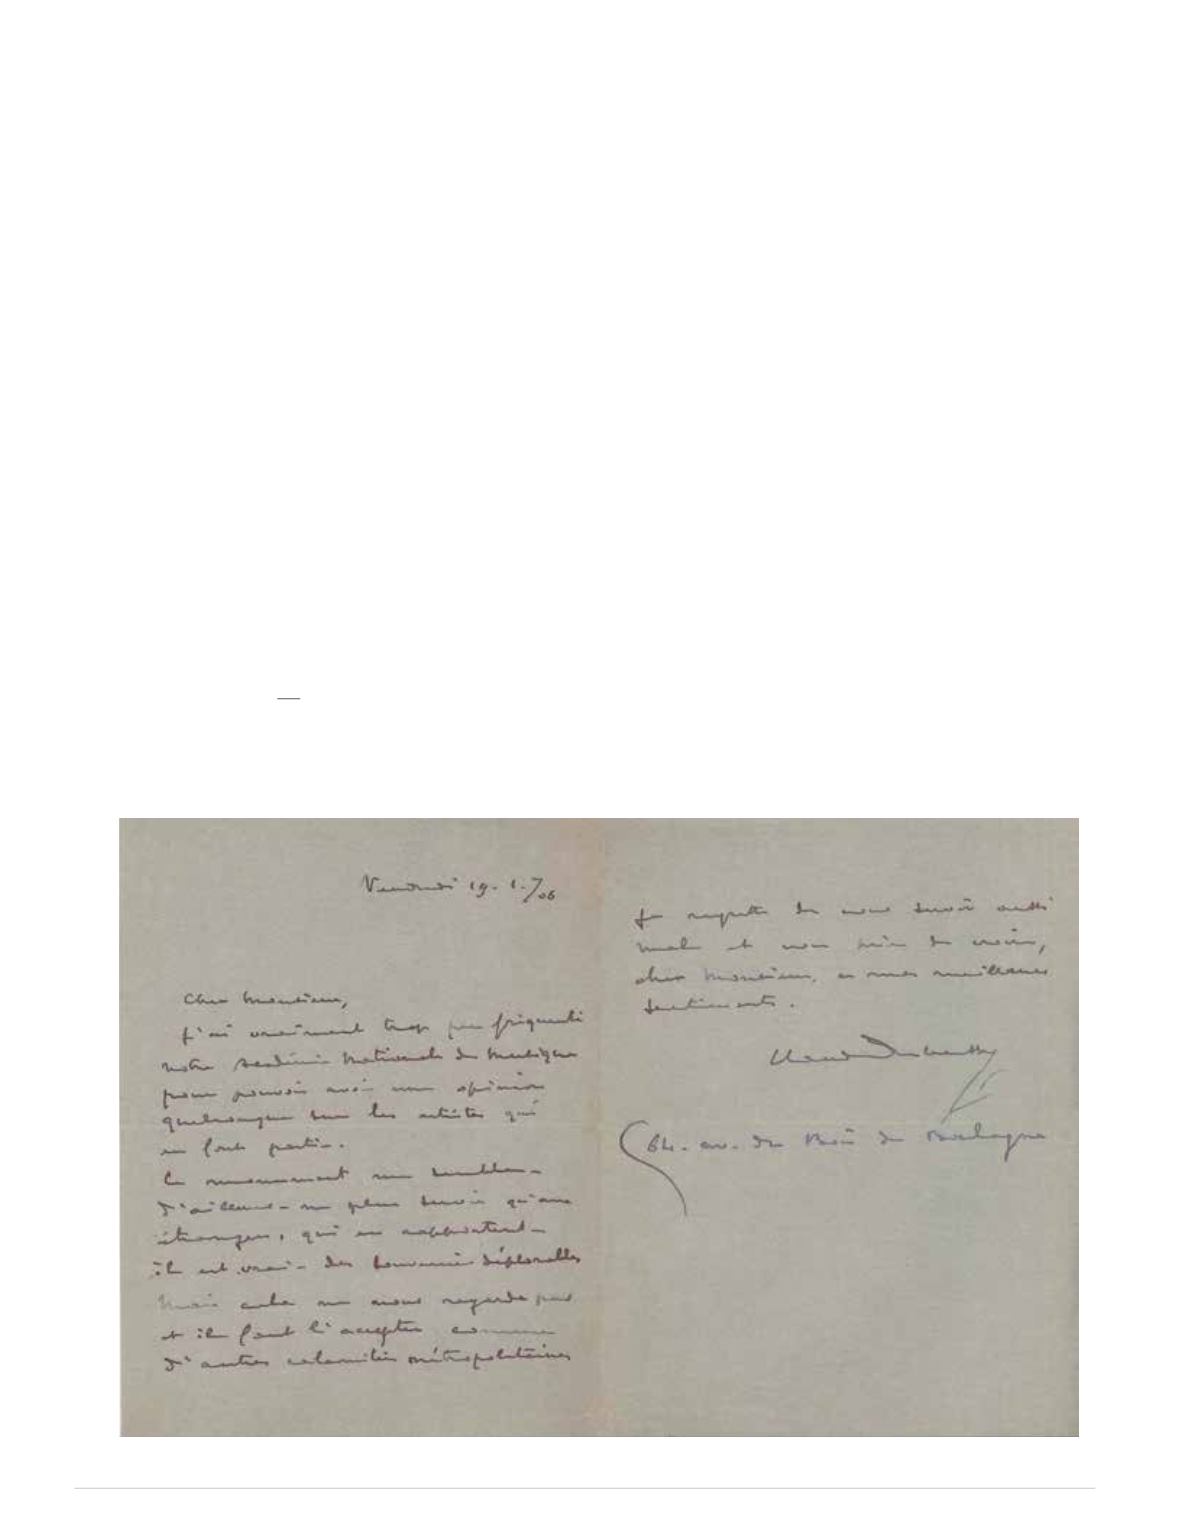 Vendredi 19. 1. /06
Cher Monsieur,
J'ai vraiment trop peu fréquenté
notre Académie Nationale de Musique
pour pouvoir avoir une opinion
quelconque sur les artistes qui
en font partie.
Ce monument ne semble–
d'ailleurs– ne plus servir qu'aux
étrangers, qui en rapportent–
il est vrai– des souvenirs déplorables
Mais cela ne nous regarde pas
et il faut l'accepter comme
d'autres calamités métropolitaines
Je regrette de vous servir aussi
mal et vous prie de croire,
cher Monsieur, à mes meilleurs
sentiments.
Claude Debussy
64. av. du Bois de Boulogne